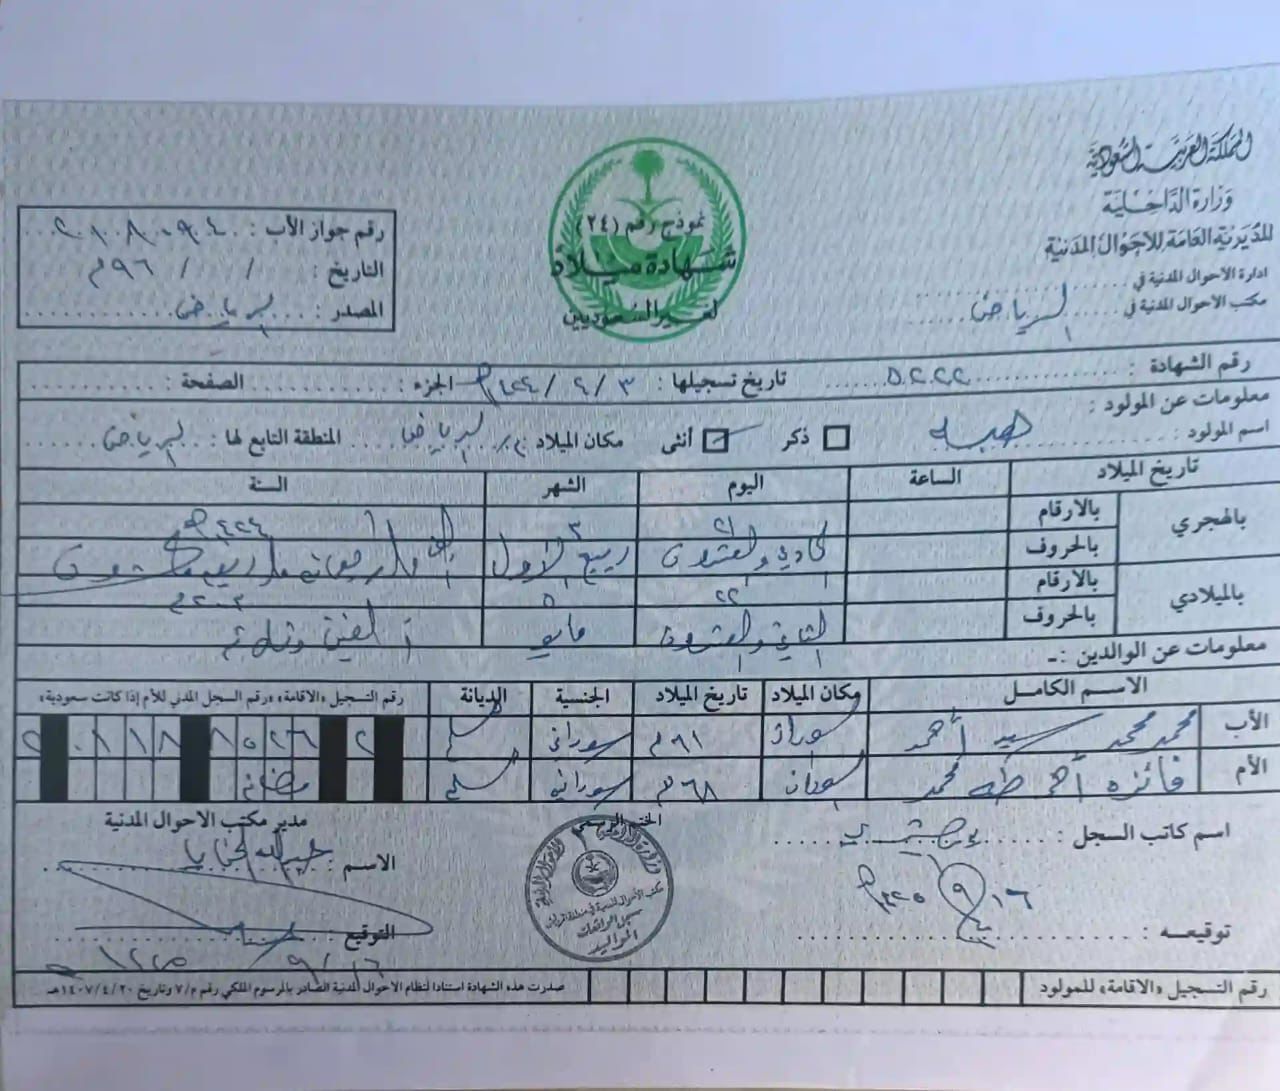 المملكة العربية السعودية
وزارة الداخلية
المديرية العامة للأحوال المدنية
ادارة الاحوال المدنية في
مكتب الاحوال المدنية في الرياض
نموذج رقم (٢٤)
شهادة ميلاد
لغير السعوديين
رقم جواز الأب :
التاريخ : / / ٩٦م
المصدر : الرياض
رقم الشهادة : ٥٢٢٢ تاريخ تسجيلها : ٣ / ٤ / ١٤٢٤هـ الجزء : الصفحة :
معلومات عن المولود :
اسم المولود : هبه ذكر أنثى مكان الميلاد الرياض المنطقة التابع لها : الرياض
تاريخ الميلاد الساعة اليوم الشهر السنة
بالهجري بالارقام ٢١ ٣ ١٤٢٤هـ
بالحروف الحادي والعشرون ربيع الأول ألف وأربعمائه وأربعه وعشرون
بالميلادي بالارقام ٢٢ ٥ ٢٠٠٣م
بالحروف الثاني والعشرون مايو ألفين وثلاثة
معلومات عن الوالدين :ـ
الاسم الكامل مكان الميلاد تاريخ الميلاد الجنسية الديانة رقم التسجيل «الاقامة» «ورقم السجل المدني للأم إذا كانت سعودية»
الأب محمد محمد سيد أحمد سودان ٦١م سوداني مسلم
الأم فائزه أحمد طه محمد سودان ٦٨م سودانيه مسلمه
اسم كاتب السجل :
١٦ / ٩ / ١٤٢٥هـ
توقيعه :
الختم الرسمي
مدير مكتب الاحوال المدنية
الاسم : عبدالله
التوقيع
١٦ / ٩ / ١٤٢٥هـ
رقم التسجيل «الاقامة» للمولود
صدرت هذه الشهادة استنادا لنظام الاحوال المدنية الصادر بالمرسوم الملكي رقم م/٧ وتاريخ ١٤٠٧/٤/٢٠هـ